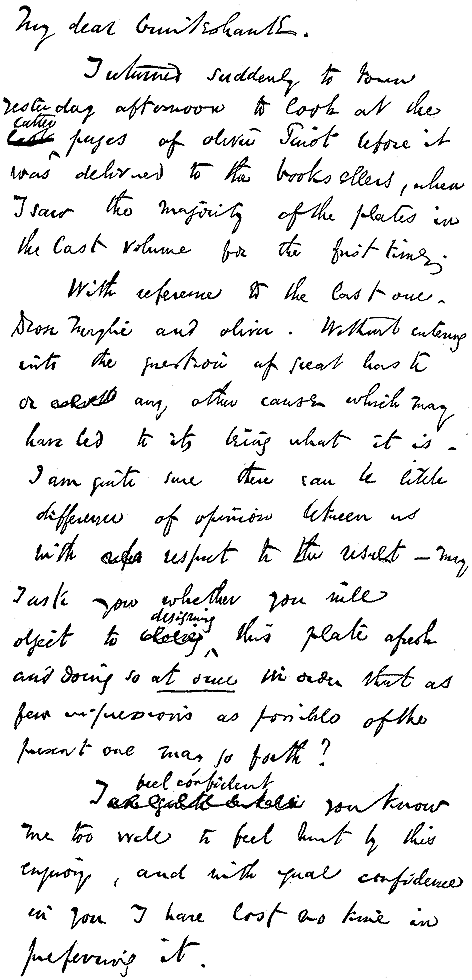 My dear Cruikshank.
I returned suddenly to town
yesterday afternoon to look at the
latter pages of Oliver Twist before it
was delivered to the booksellers, when
I saw the majority of the plates in
the last volume for the first time.
With reference to the last one -
Rose Maylie and Oliver. Without entering
into the question of great haste
or any other cause which may
have led to its being what it is -
I am quite sure there can be little
difference of opinion between us
with respect to the result - may
I ask you whether you will
object to designing this plate afresh
and doing so at once in order that as
few impressions as possible of the
present one may go forth?
I feel confident you know
me too well to feel hurt by this
enquiry, and with equal confidence
in you I have lost no time in
preferring it.